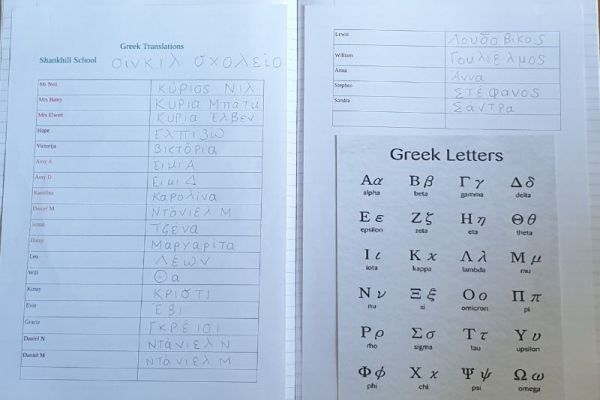 Greek Translations
Shankhill School σινκιλ σχολείο
Mr Neil ΚΥΡΙΟΣ ΝΙΛ
Mrs ΚΥΡΙΑ ΜΠΑΤΙ
Mrs Elwen ΚΥΡΙΑ ΈΛΒΕΝ
Hope ΕΛΠΙΖΩ
Viktorija ΒΙΚΤΌΡΙΑ
Amy A ΕΙΚΙ Α
Amy D ΕΙΚΙ Δ
Karolina ΚΑΡΟΛΊΝΑ
Daniel M ΝΤΆΝΙΕΛ Μ
Jenna ΤΖΈΝΑ
Daisy ΜΑΡΓΑΡΊΤΑ
Leo ΛΈΩΝ
Will Θα
Kirsty ΚΡΙΣΤΙ
Evie ΈΒΙ
Gracie ΓΚΡΈΙΣΙ
Daniel N ΝΤΆΝΙΕΛ Ν
Daniel M ΝΤΆΝΙΕΛ Μ
Lewis Λουδοβίκος
William Γουλιέλμος
Anna Άννα
Stephen ΣΤΈΦΑΝΟΣ
Sandra ΣΆΝΤΡΑ
Greek Letters
Αα Ββ Γγ Δδ
alpha beta gamma delta
Εε Ζζ Ηη Θθ
epsilon zeta eta theta
Ιι Κκ Λλ Μμ
iota kappa lambda mu
Νν Ξξ Οο Ππ
nu xi omicron pi
Ρρ Σσ Ττ Υυ
rho sigma tau upsilon
Φφ Χχ Ψψ Ωω
phi chi psi omega